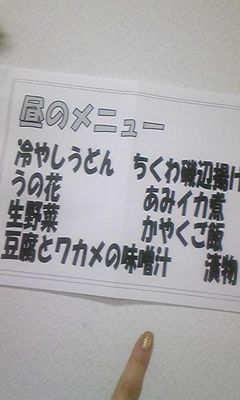 昼のメニュー
冷やしうどん ちくわ磯辺揚げ
うの花 あみイカ煮
生野菜 かやくご飯
豆腐とワカメの味噌汁 漬物